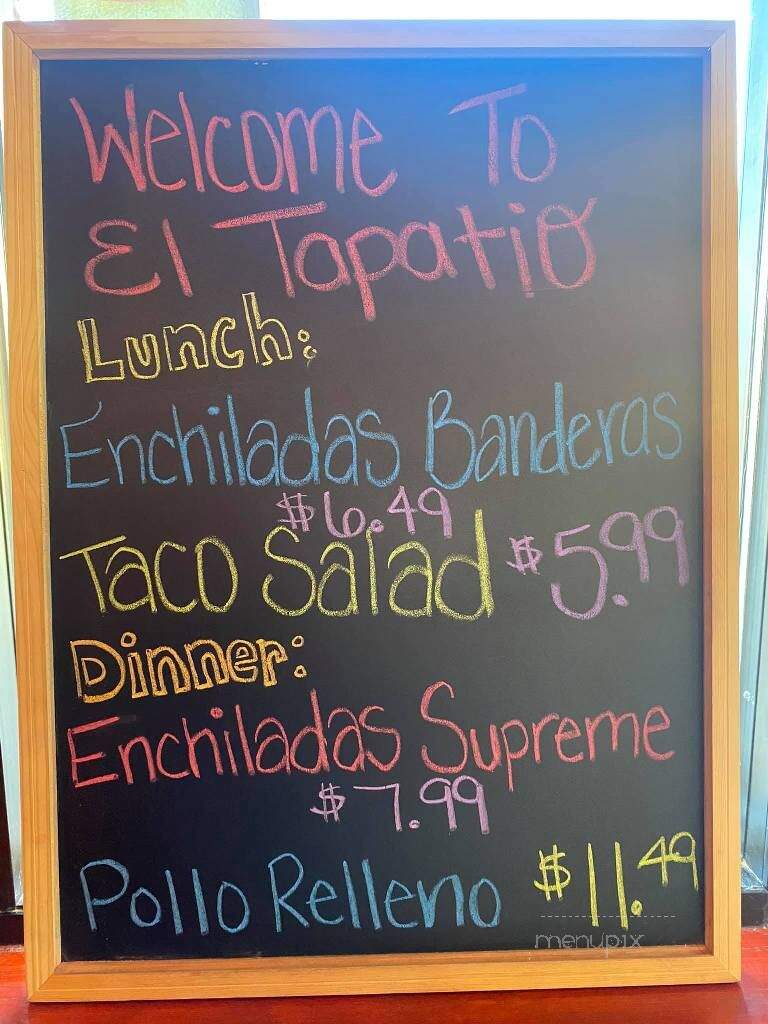 Welcome To
El Tapatio
Lunch:
Enchiladas Banderas
$6.49
Taco Salad $5.99
Dinner:
Enchiladas Supreme
$7.99
Pollo Relleno $11.49
menupix